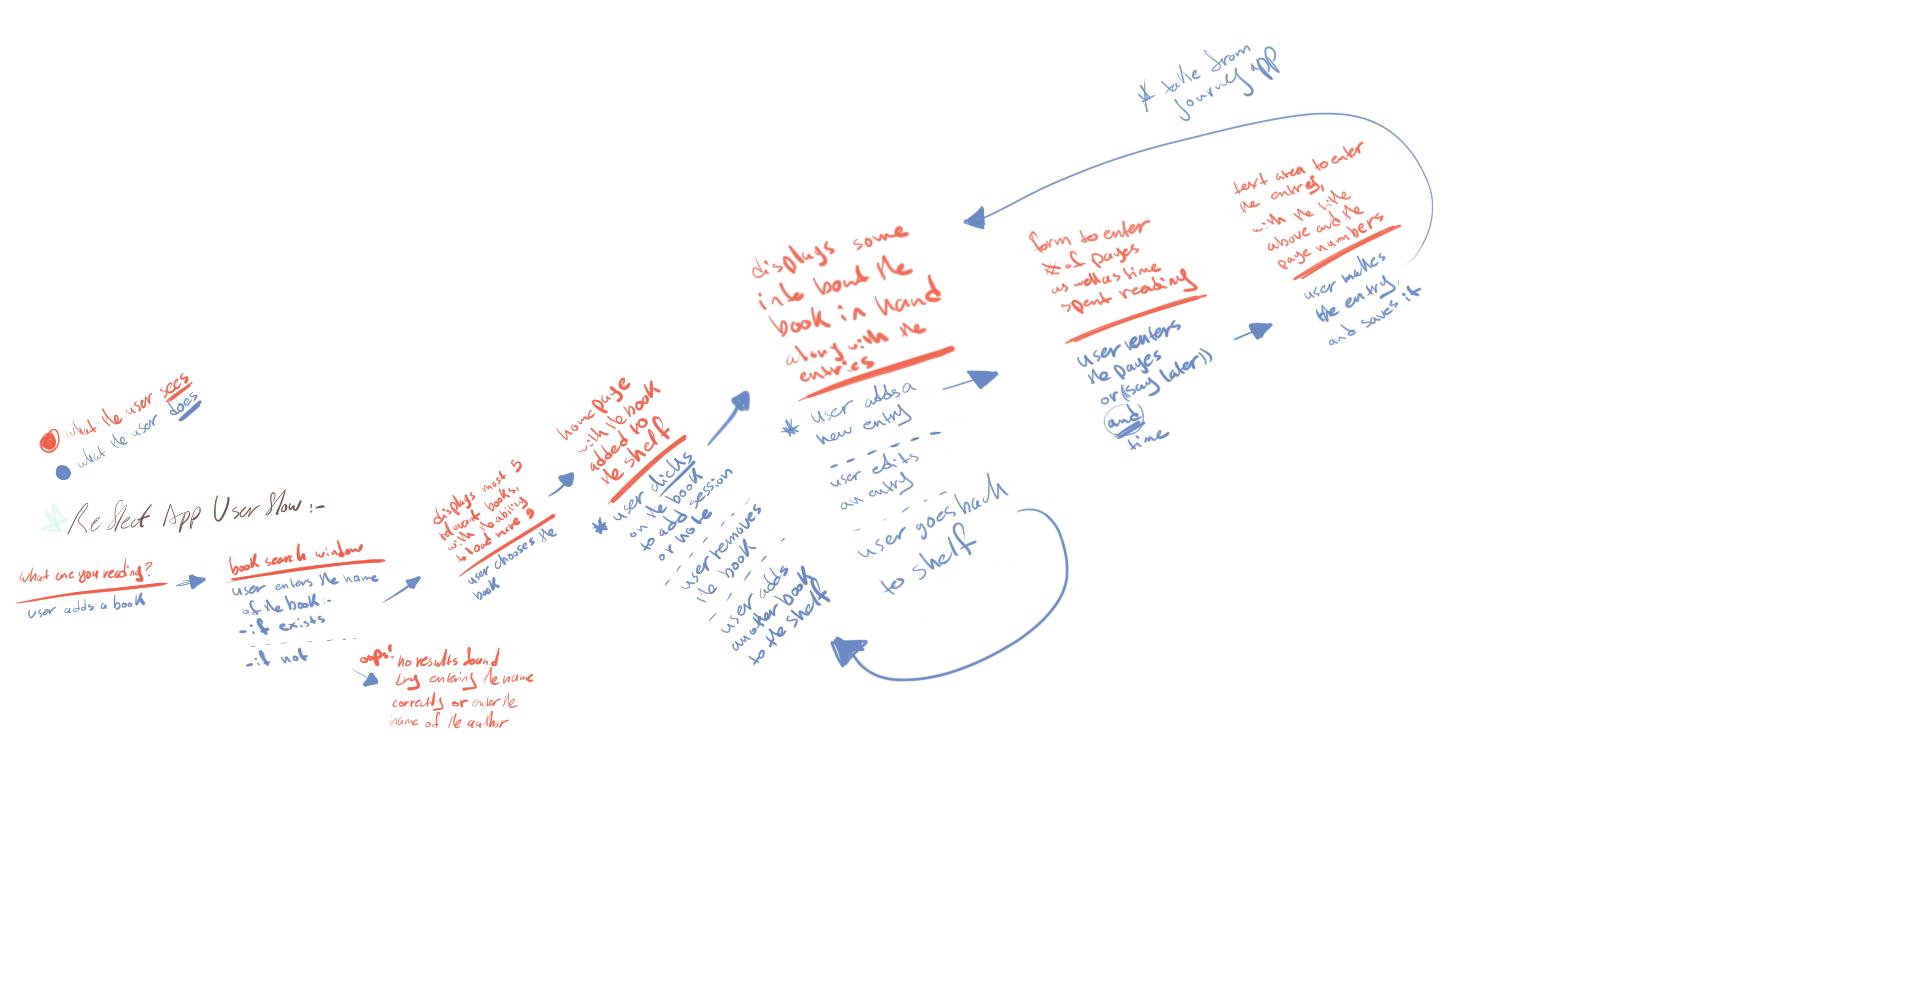 * take from
journey app
what the user sees
what the user does
Reflect App User flow :-
what are you reading?
user adds a book
book search window
user enters the name
of the book :-
- if exists
- if not
oops! no results found
try entering the name
correctly or enter the
name of the author
displays most 5
relevant books,
with the ability
to load more
user chooses the
book
home page
with the book
added to
the shelf
* user clicks
on the book
to add session
or note
user removes
the book
user adds
another book
to the shelf
displays some
info bout the
book in hand
along with the
entries
* user adds a
new entry
user edits
an entry
user goes back
to shelf
form to enter
# of pages
as well as time
spent reading
user enters
the pages
or (say later))
and
time
text area to enter
the entries,
with the title
above and the
page numbers
user makes
the entry,
and saves it